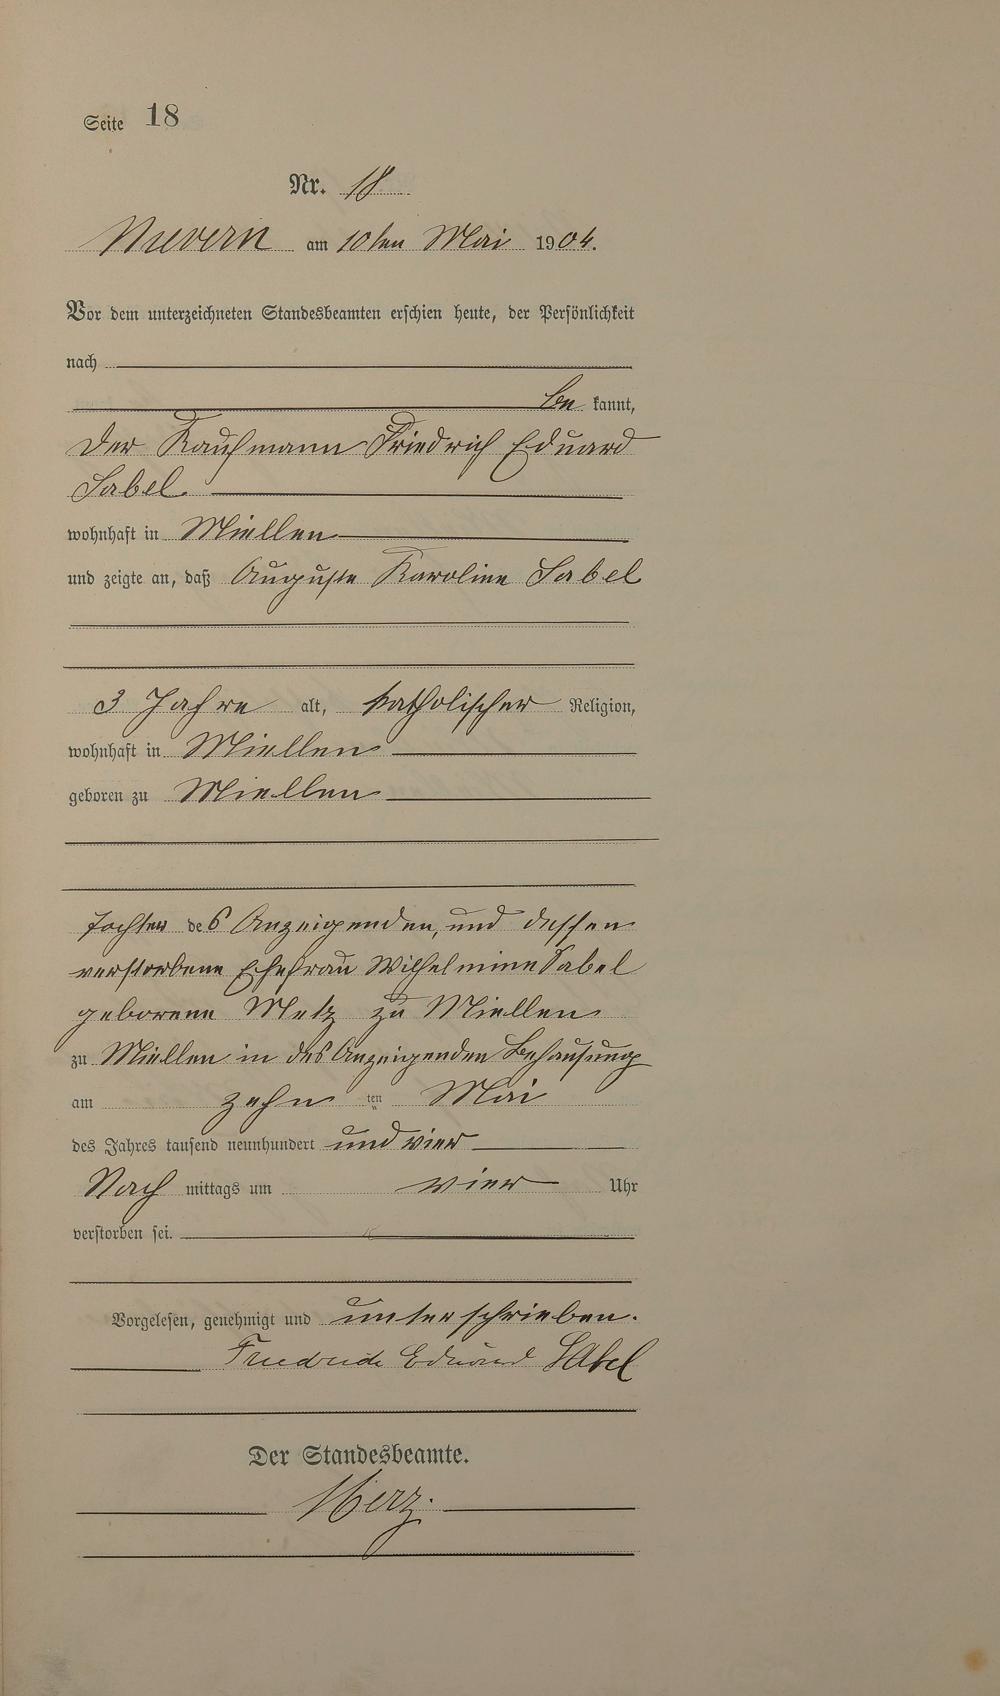 Seite 18
Nr. 18
Nievern am 10ten Mai 1904.
Vor dem unterzeichneten Standesbeamten erschien heute, der Persönlichkeit
nach
be kannt,
der Kaufmann Friedrich Eduard
Sabel
wohnhaft in Miellen
und zeigte an, daß Auguste Karoline Sabel
3 Jahre alt, katholischer Religion,
wohnhaft in Miellen
geboren zu Miellen
Tochter des Anzeigenden, und dessen
verstorbene Ehefrau Wilhelmine Sabel
geborene Metz zu Miellen
zu Miellen in des Anzeigenden Behausung
am zehn ten Mai
des Jahres tausend neunhundert und vier
Nach mittags um vier Uhr
verstorben sei.
Vorgelesen, genehmigt und unterschrieben.
Friedrich Eduard Sabel
Der Standesbeamte.
Herz.